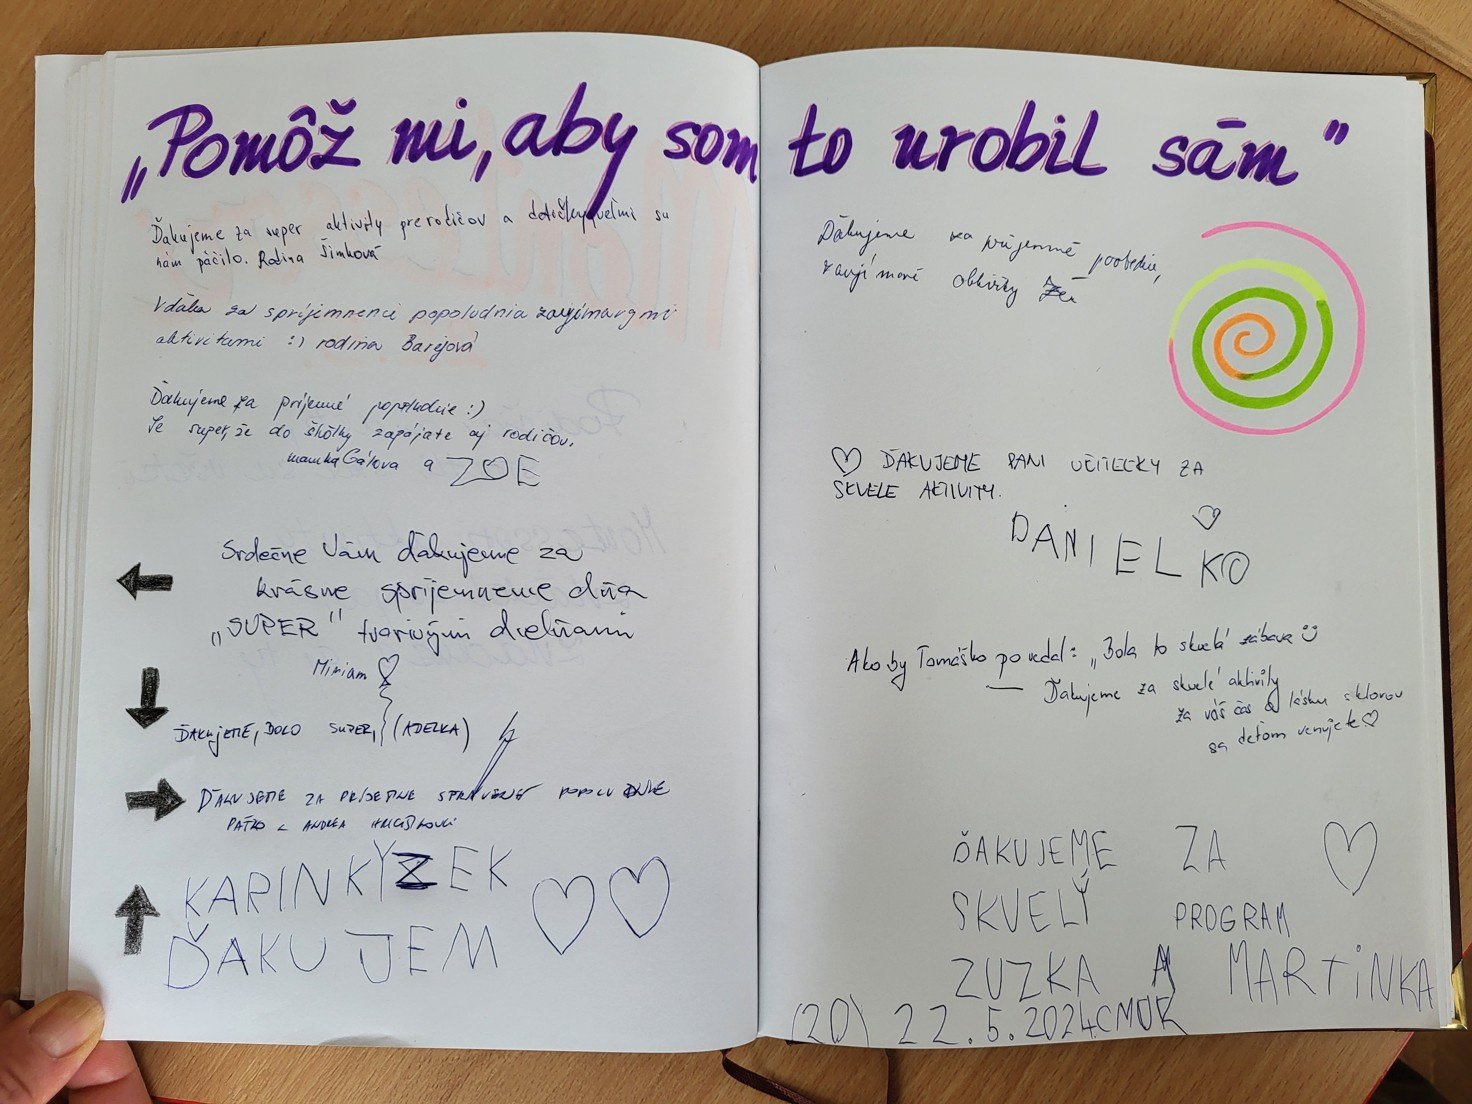 „Pomôž mi, aby som to urobil sám"
Ďakujeme za super aktivity pre rodičov a detičky, veľmi sa
nám páčilo. Rodina Šimková
Vďaka za spríjemnenie popoludnia zaujímavými
aktivitami :) rodina Barejová
Ďakujeme za príjemné popoludnie :)
Je super, že do škôlky zapájate aj rodičov.
mamka Gálova a ZOE
Srdečne Vám ďakujeme za
krásne spríjemnenie dňa
„SUPER" tvorivými dielňami
Miriam
ĎAKUJEME, BOLO SUPER, (ADELKA)
ĎAKUJEME ZA PRÍJEMNE STRÁVENÉ POPOLUDNIE
PAŤKO A ANDREA
KARINKY ZEK
ĎAKUJEM
Ďakujeme za príjemné poobedie,
zaujímavé
ĎAKUJEME PANI UČITEĽKY ZA
SKVELE AKTIVITY.
DANIELKO
Ako by Tomáško povedal: „Bola to skvelá zábava
Ďakujeme za skvelé aktivity
za váš čas a lásku s ktorou
sa deťom venujete
ĎAKUJEME ZA
SKVELÝ PROGRAM
ZUZKA A MARTiNKA
(20) 22.5.2024 CMOR